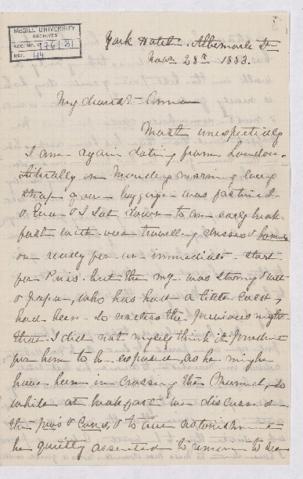 McGILL UNIVERSITY
ARCHIVES
ACC. NO.
REF. 44
York Hotel - Albemarle St
Novr 28th 1883.
My dearest Anna
Most unexpectedly
I am again dating from London.
Literally on Monday morning every
strap of our luggage was fastened
& Eva & I sat down to an early break
fast with our travelling dresses & bonnets
on ready for an immediate start
for Paris. but the was strong
& Papa, who has had a little cough,
had been so the previous night
that I did not myself think it prudent
for him to be exposed, as he might
have been in crossing the Channel, so
while at breakfast we discussed
the pros & cons, & to our astonishment
he quietly assented to remain